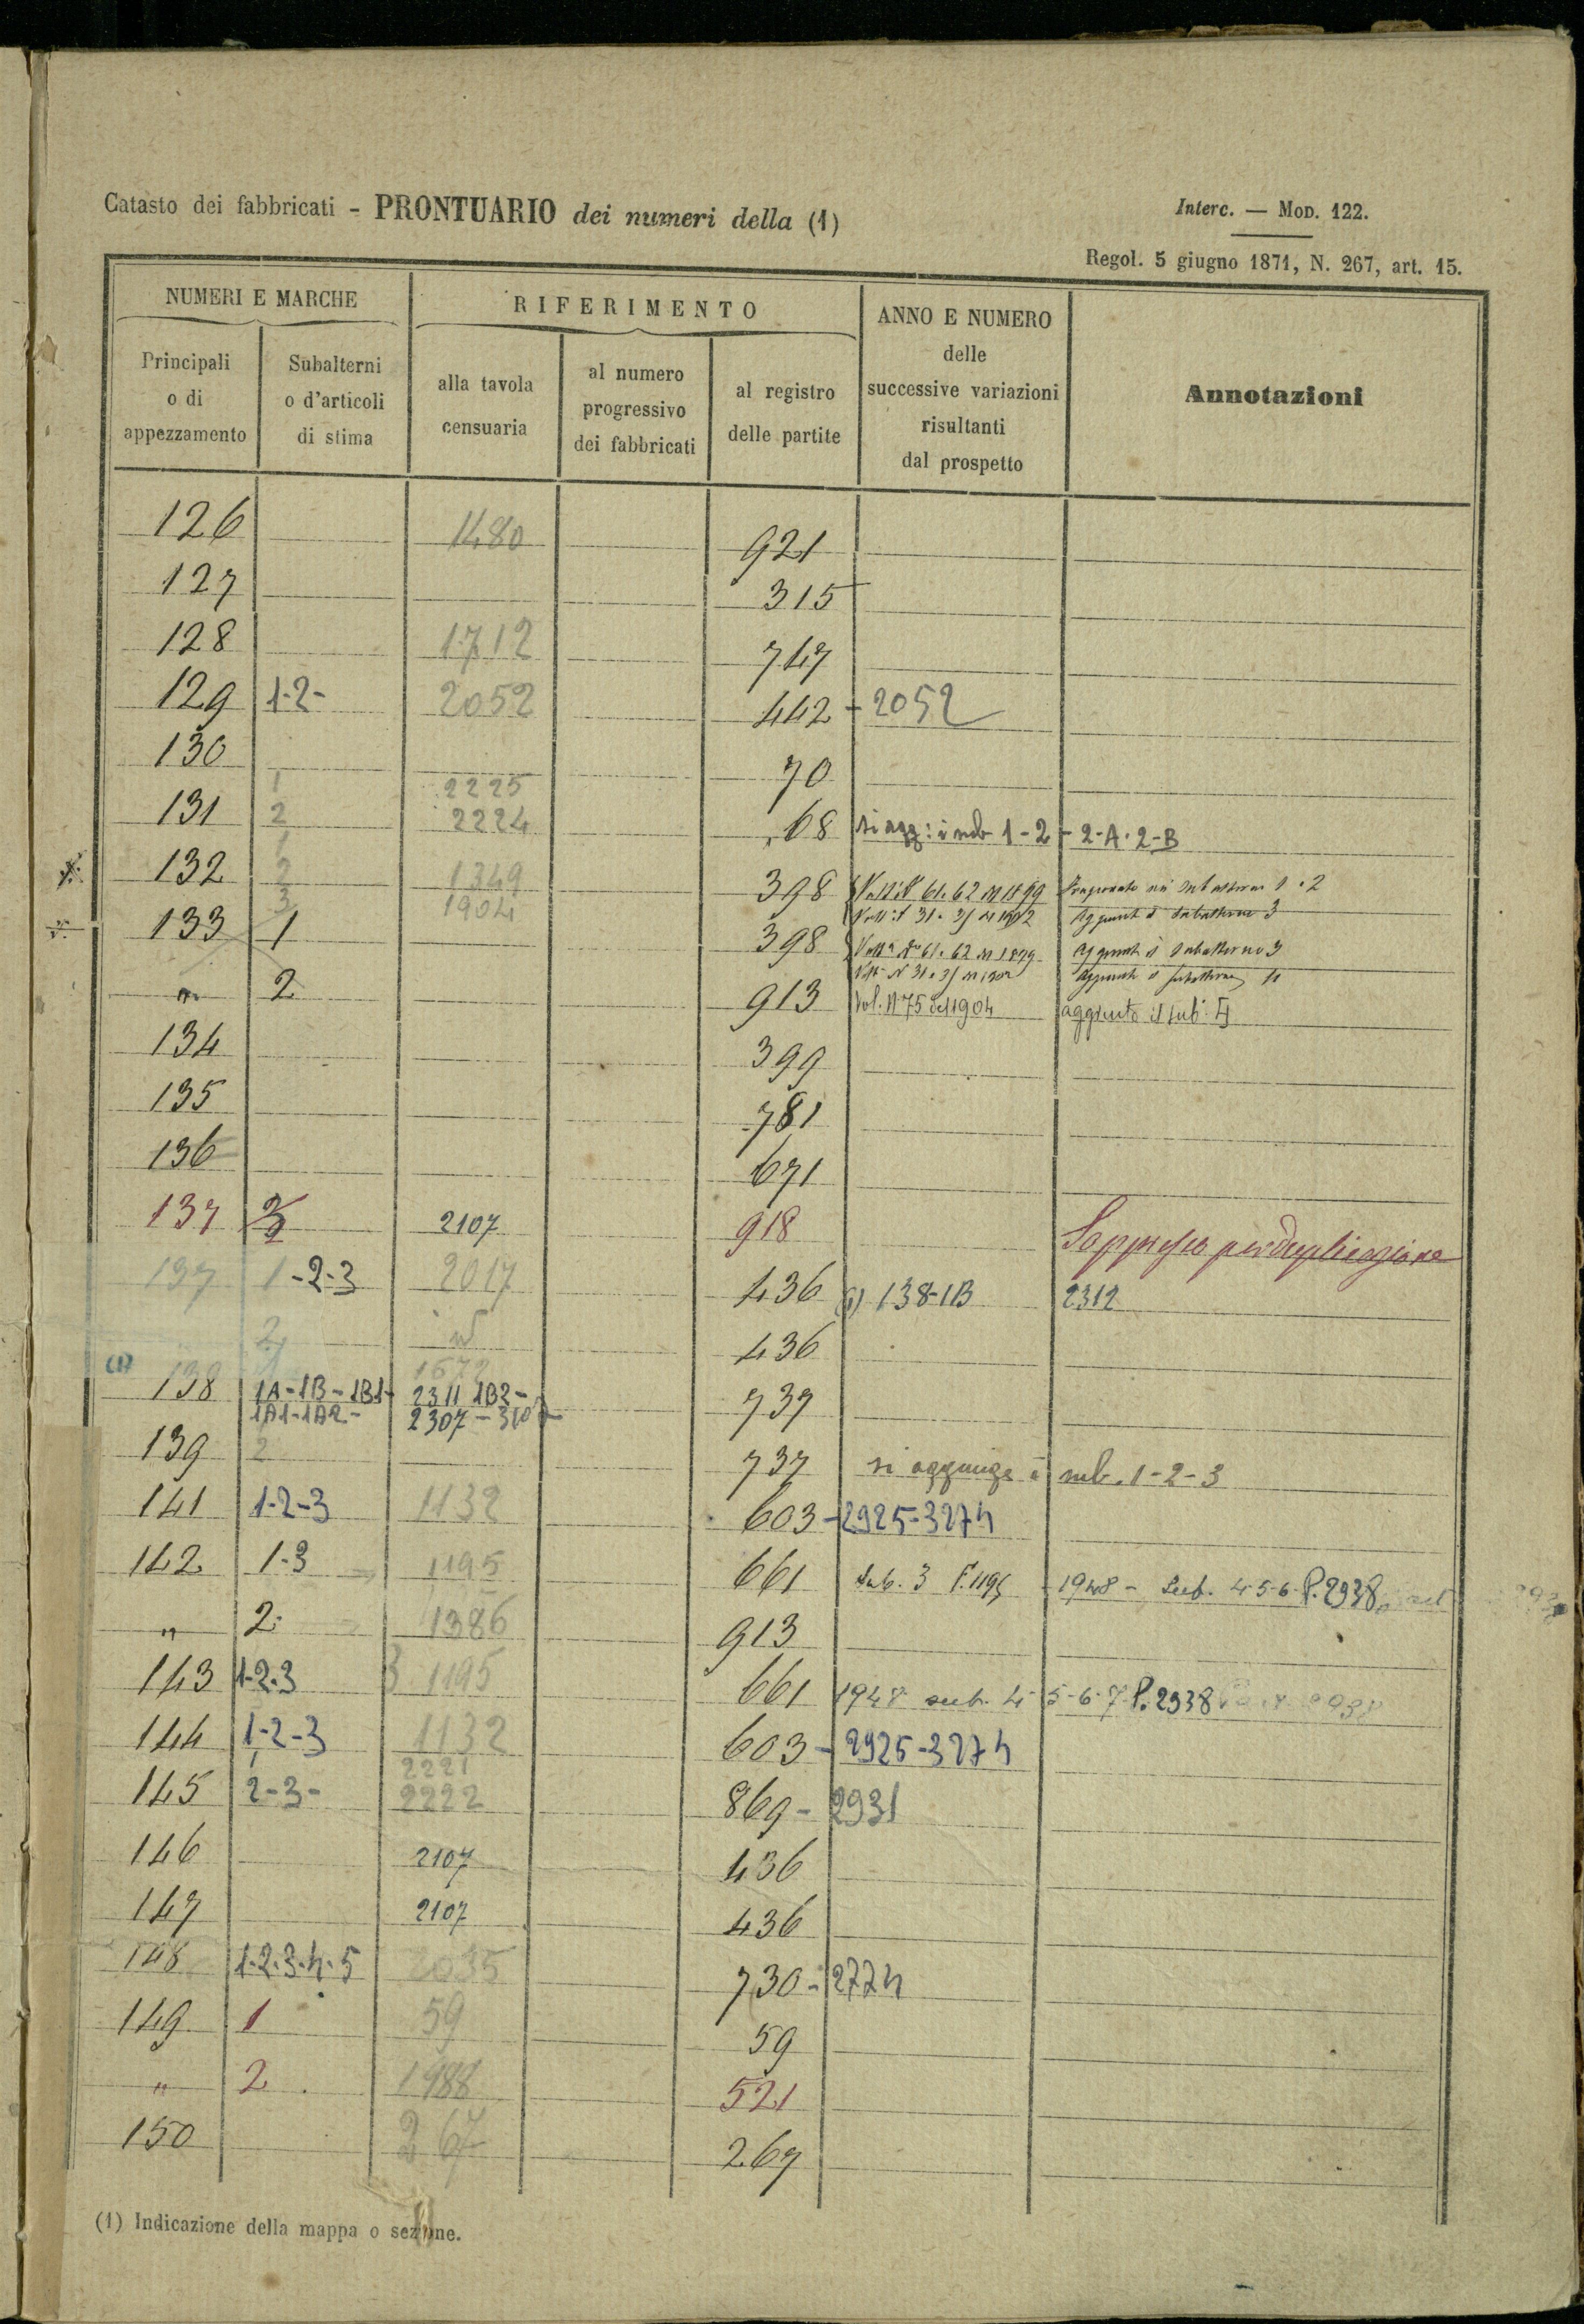 Catasto dei fabbricati - PRONTUARIO dei numeri della (1)
Interc. — MOD. 122.
Regol. 5 giugno 1871, N. 267, art. 15.
NUMERI E MARCHE
RIFERIMENTO
ANNO E NUMERO
delle
successive variazioni
risultanti
dal prospetto
Annotazioni
Principali
o di
appezzamento
Subalterni
o d'articoli
di stima
alla tavola
censuaria
al numero
progressivo
dei fabbricati
al registro
delle partite
126 1480 921
127 315
128 1712 747
129 1-2- 2052 442 - 2052
130 70
1 2225
131 2 2224 68 si agg: i sub 1-2 - 2-A. 2-B
132 1 2 1349 398 61.62 1899 subalterni 1.2
3 1904 31. 1902 Aggiunto il subalterno 3
133 1 398 61.62 Aggiunto il subalterno 3
Aggiunto il subalterno
" 2 913 Vol. N° 75 del 1904 aggiunto il sub.
134 399
135 781
136 671
137 2107 918 Soppresso per duplicazione
137 1-2-3 2017 436 (1) 138-1B 2312
2 436
(1) 138 1A-1B-1B1- 2311 1B2- 737
1A1-1A2- 2307-
139 2 737 si aggiunge i sub. 1-2-3
141 1-2-3 1132 603 - 2925-3274
142 1-3 1195 661 Sub. 3 P. 1195 - 1948 - Sub. 4-5-6- P. 2938
" 2 1386 913
143 1-2-3 3 1195 661 1948 sub. 4-5-6-7 P. 2938
144 1-2-3 1132 603 - 2925-3274
1 2221
145 2-3- 2222 869 - 2931
146 2107 436
147 2107 436
148 1-2-3-4-5 2035 730 - 2774
149 1 59 59
" 2 1988 521
150 267 267
(1) Indicazione della mappa o sezione.